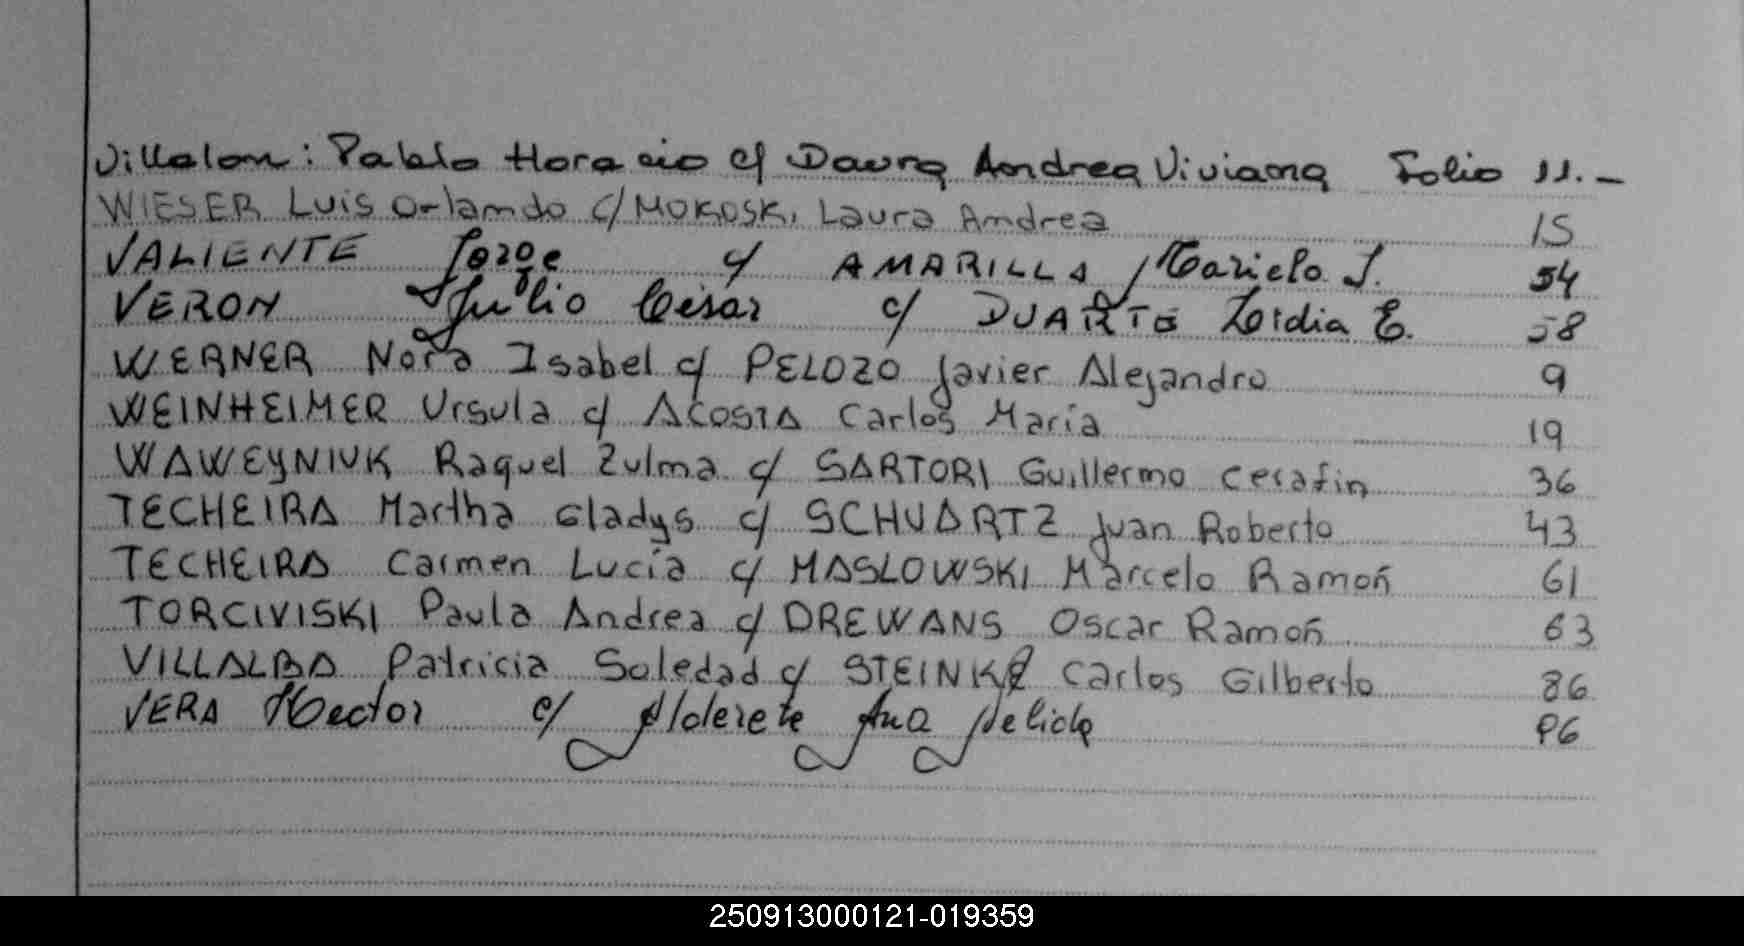 Villalon: Pablo Horacio c/ Davna Andrea Viviana Folio 11.-
WIESER Luis Orlando c/ MOKOSKI Laura Andrea 15
VALIENTE Jorge c/ AMARILLA Mariela J. 54
VERON Julio César c/ DUARTE Lidia E. 58
WERNER Nora Isabel c/ PELOZO Javier Alejandro 9
WEINHEIMER Ursula c/ ACOSTA Carlos María 19
WAWEYNIUK Raquel Zulma c/ SARTORI Guillermo Cerafin 36
TECHEIRA Martha Gladys c/ SCHUARTZ Juan Roberto 43
TECHEIRA Carmen Lucía c/ MASLOWSKI Marcelo Ramón 61
TORCIVISKI Paula Andrea c/ DREWANS Oscar Ramón 63
VILLALBA Patricia Soledad c/ STEINKE Carlos Gilberto 86
VERA Hector c/ Alderete Ana Delicia 96
250913000121-019359